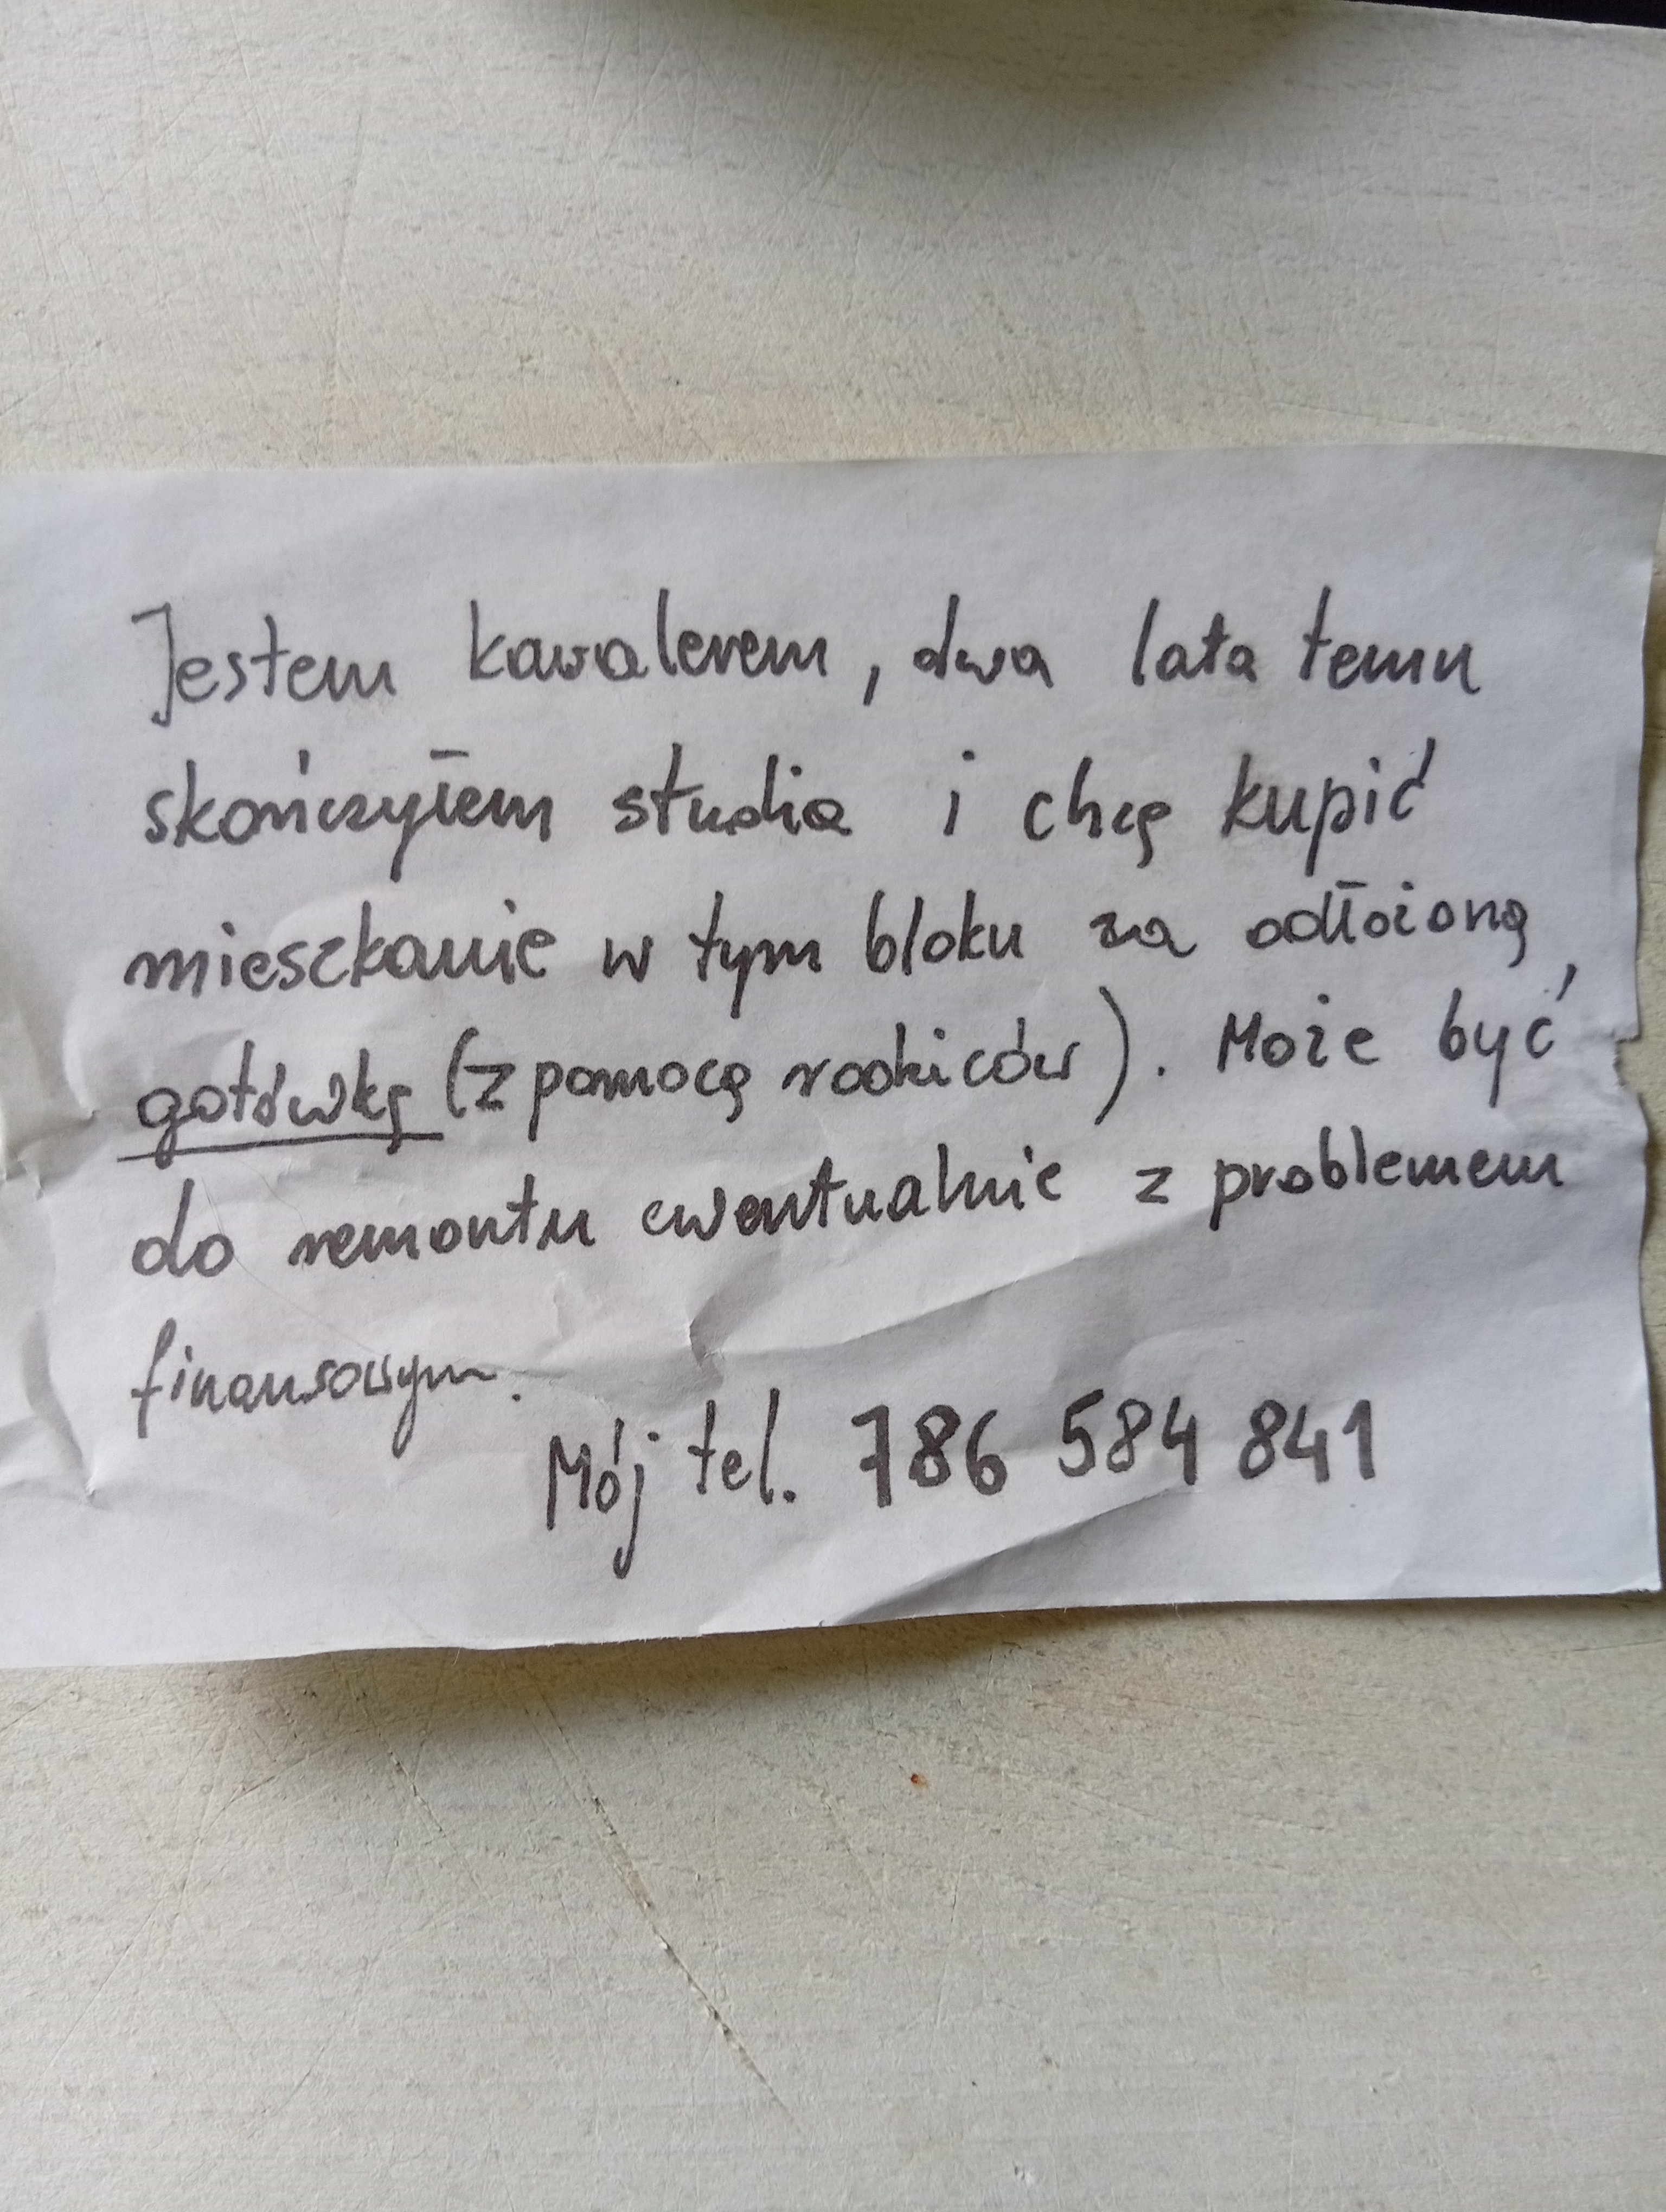 Jestem kawalerem, dwa lata temu
skończyłem studia i chcę kupić
mieszkanie w tym bloku za odłożoną
gotówkę (z pomocą rodziców). Może być
do remontu ewentualnie z problemem
finansowym.
Mój tel. 786 584 841